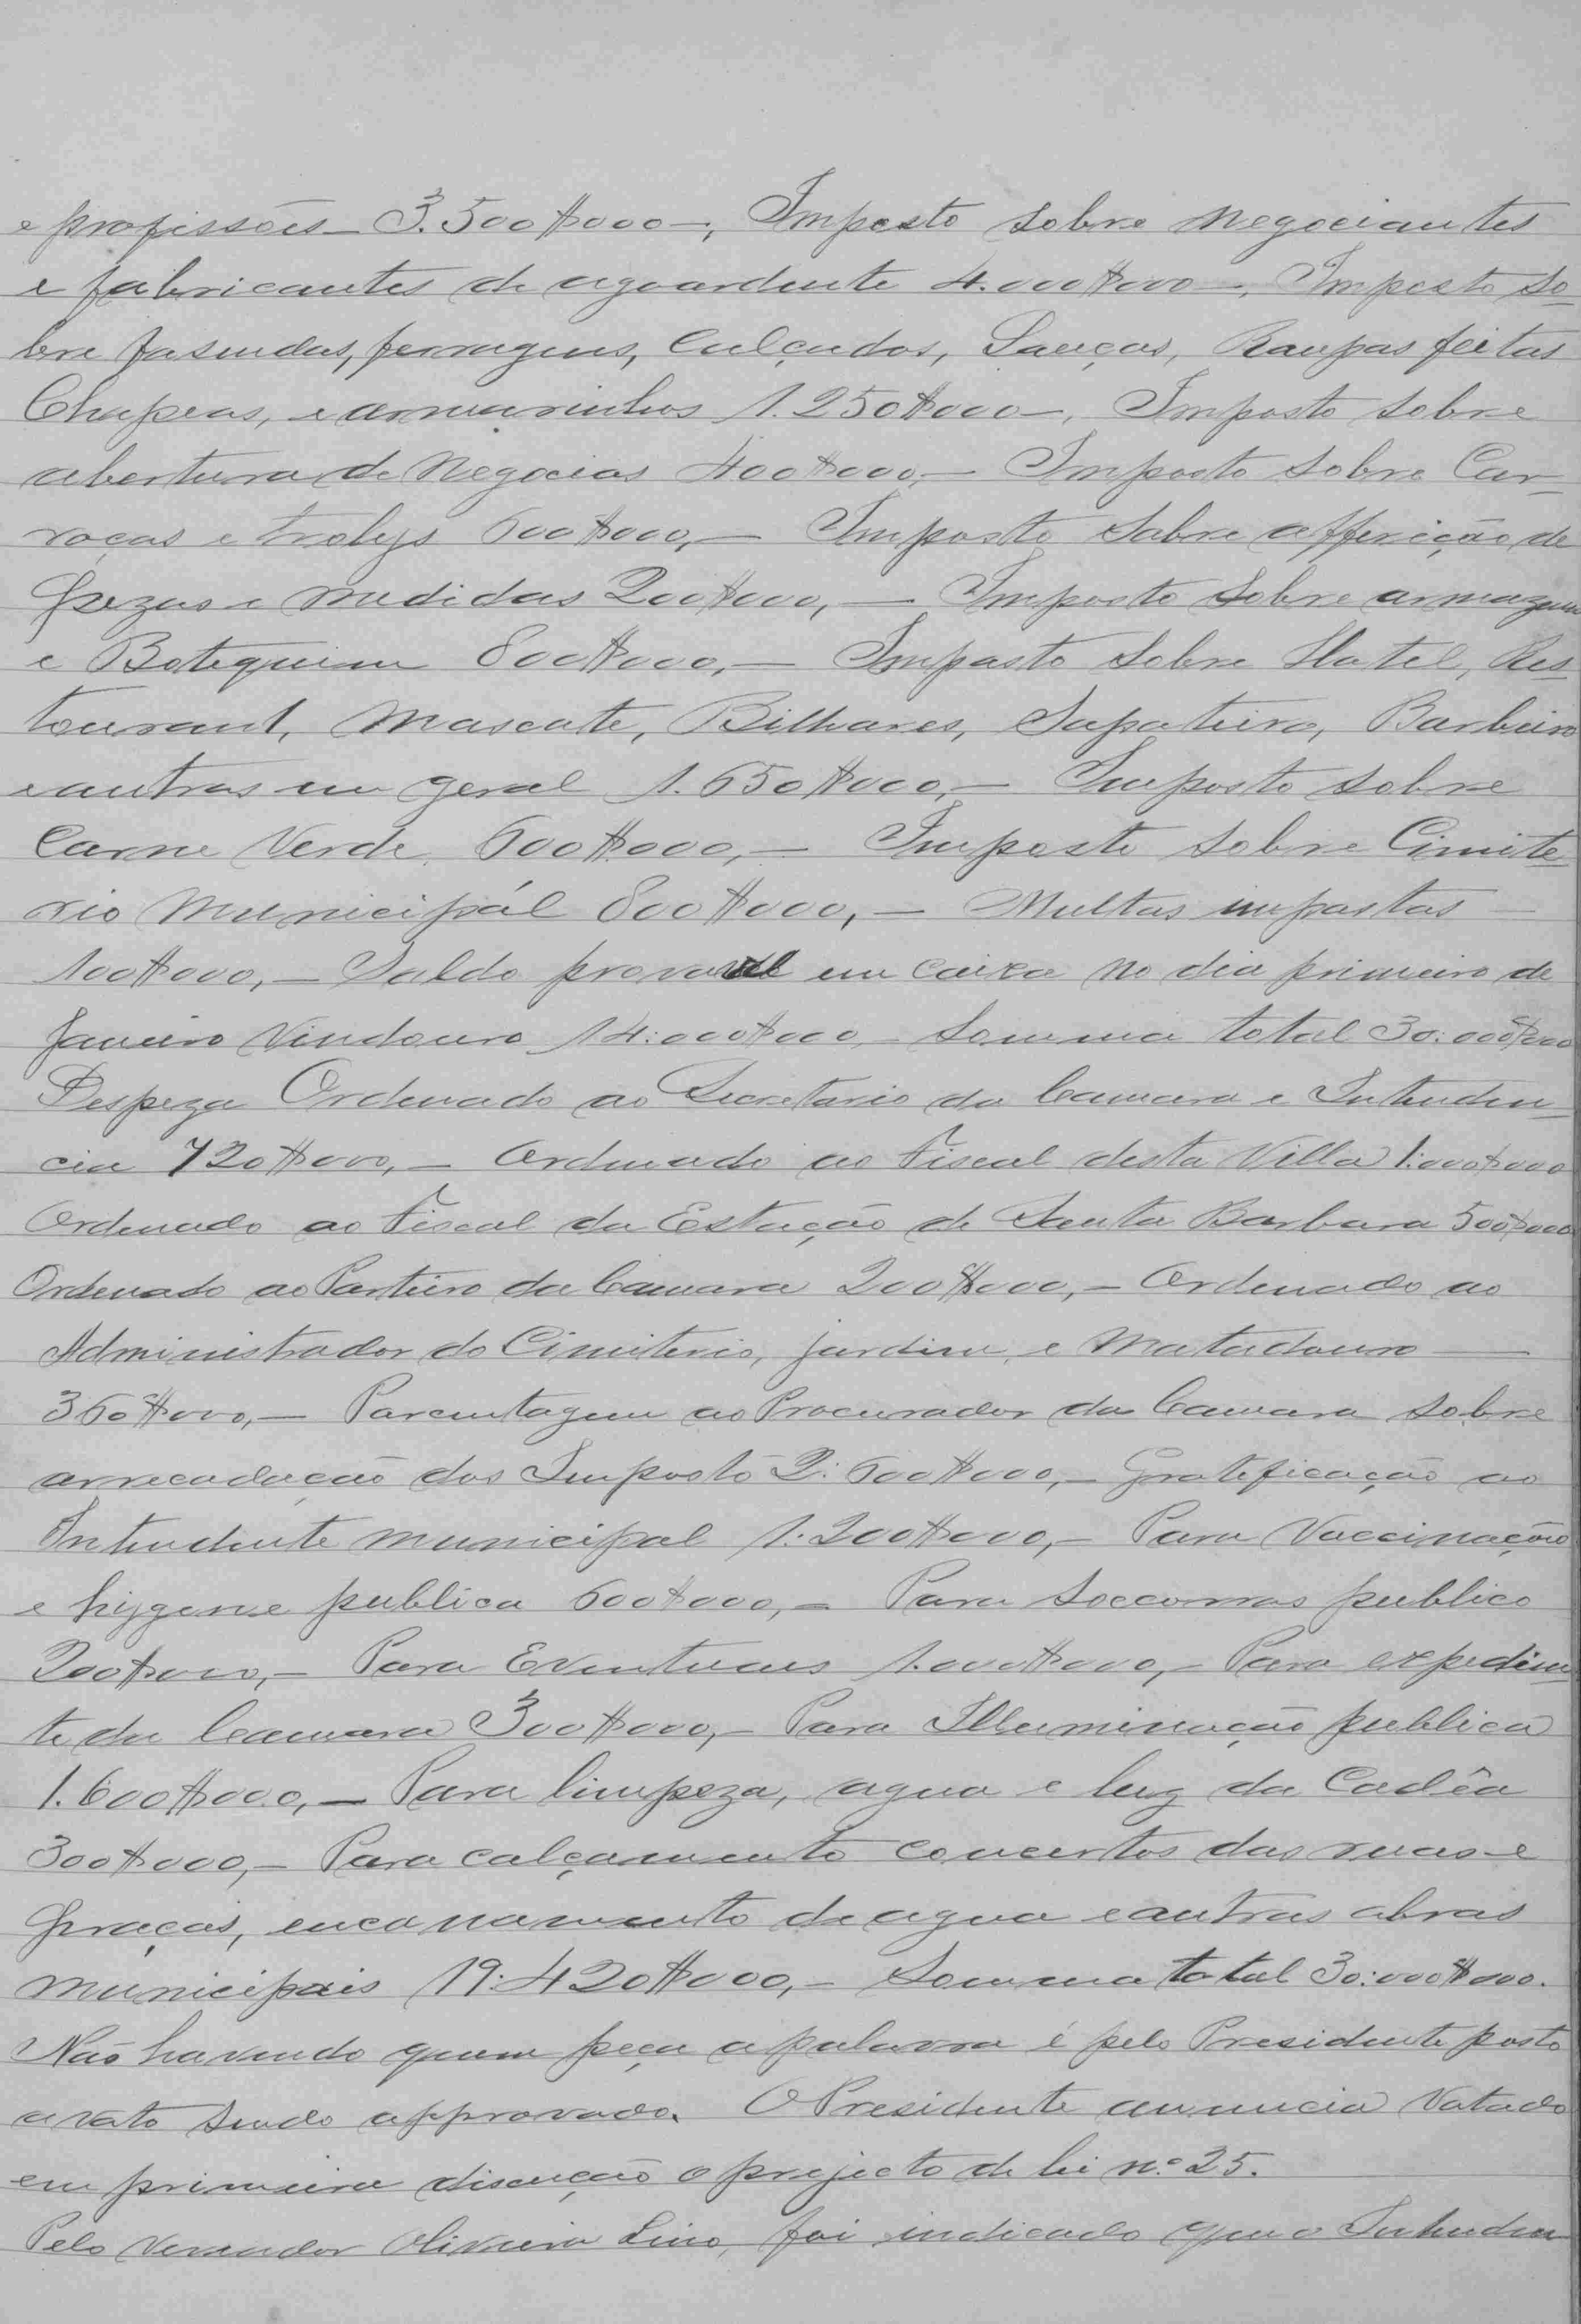 e profissões — 3.500$000 —, Imposto sobre Negociantes
e fabricantes de aguardente 4.000$000 —, Imposto so-
bre fasendas, ferragens, Calçados, Louças, Roupas feitas
Chapeos, e armarinhos 1.250$000 —, Imposto sobre
abertura de Negocios 400$000, — Imposto sobre Car-
roças e trolys 600$000, — Imposto sobre afferição de
pezos e medidas 200$000, — Imposto sobre armazem
e Botequim 800$000, — Imposto sobre Hotel, Res-
tourant, Mascate, Bilhares, Sapateiro, Barbeiro
e outros em geral 1.650$000, — Imposto sobre
Carne Verde 600$000, — Imposto sobre Cimite-
rio Municipál 800$000, — Multas impostas —
100$000, — Saldo provavel em caixa no dia primeiro de
Janeiro Vindouro 14:000$000 — Somma total 30:000$000
Despeza Ordenado ao Secretario da Camara e Intenden-
cia 720$000, — Ordenado ao Fiscal desta Villa 1:000$000
Ordenado ao Fiscal da Estação de Santa Barbara 500$000
Ordenado ao Porteiro da Camara 200$000, — Ordenado ao
Administrador do Cimiterio, jardim, e Matadouro —
360$000, — Parcentagem ao Procurador da Camara sobre
arrecadação dos Imposto 2:600$000, — Gratificação ao
Intendente municipal 1:200$000, — Para Vaccinação
e hygene publica 600$000, — Para Soccorros publico
200$000, — Para Eventuaes 1.000$000, — Para expedien-
te da Camara 300$000, — Para Illuminação publica
1.600$000, — Para limpeza, agua e luz da Cadêa
300$000, — Para calçamento concertos das ruas e
praças, encanamento de agua e outras obras
municipais 19:420$000, — Somma total 30:000$000.
Não havendo quem peça a palavra é pelo Presidente posto
a voto sendo approvado. O Presidente anuncia Votado
em primeira discução o projecto de lei n.º 25.
Pelo Vereador Oliveira Lino, foi indicado que o Intenden